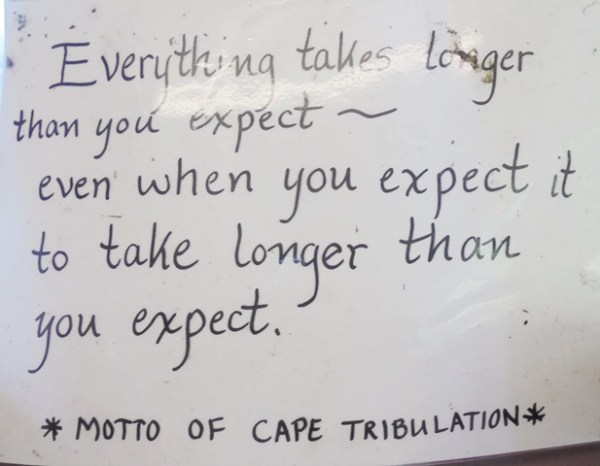 Everything takes longer
than you expect ~
even when you expect it
to take longer than
you expect.
* MOTTO OF CAPE TRIBULATION *